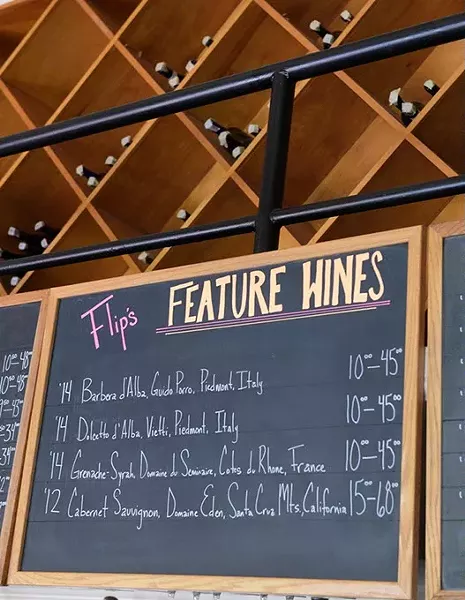 Flip's FEATURE WINES
'14 Barbera d'Alba, Guido Porro, Piedmont, Italy 10⁰⁰-45⁰⁰
'14 Dilcetto d'Alba, Vietti, Piedmont, Italy 10⁰⁰-45⁰⁰
'14 Grenache-Syrah, Domaine du Seminaire, Cotes du Rhone, France 10⁰⁰-45⁰⁰
'12 Cabernet Sauvignon, Domaine Eden, Santa Cruz Mts, California 15⁰⁰-68⁰⁰